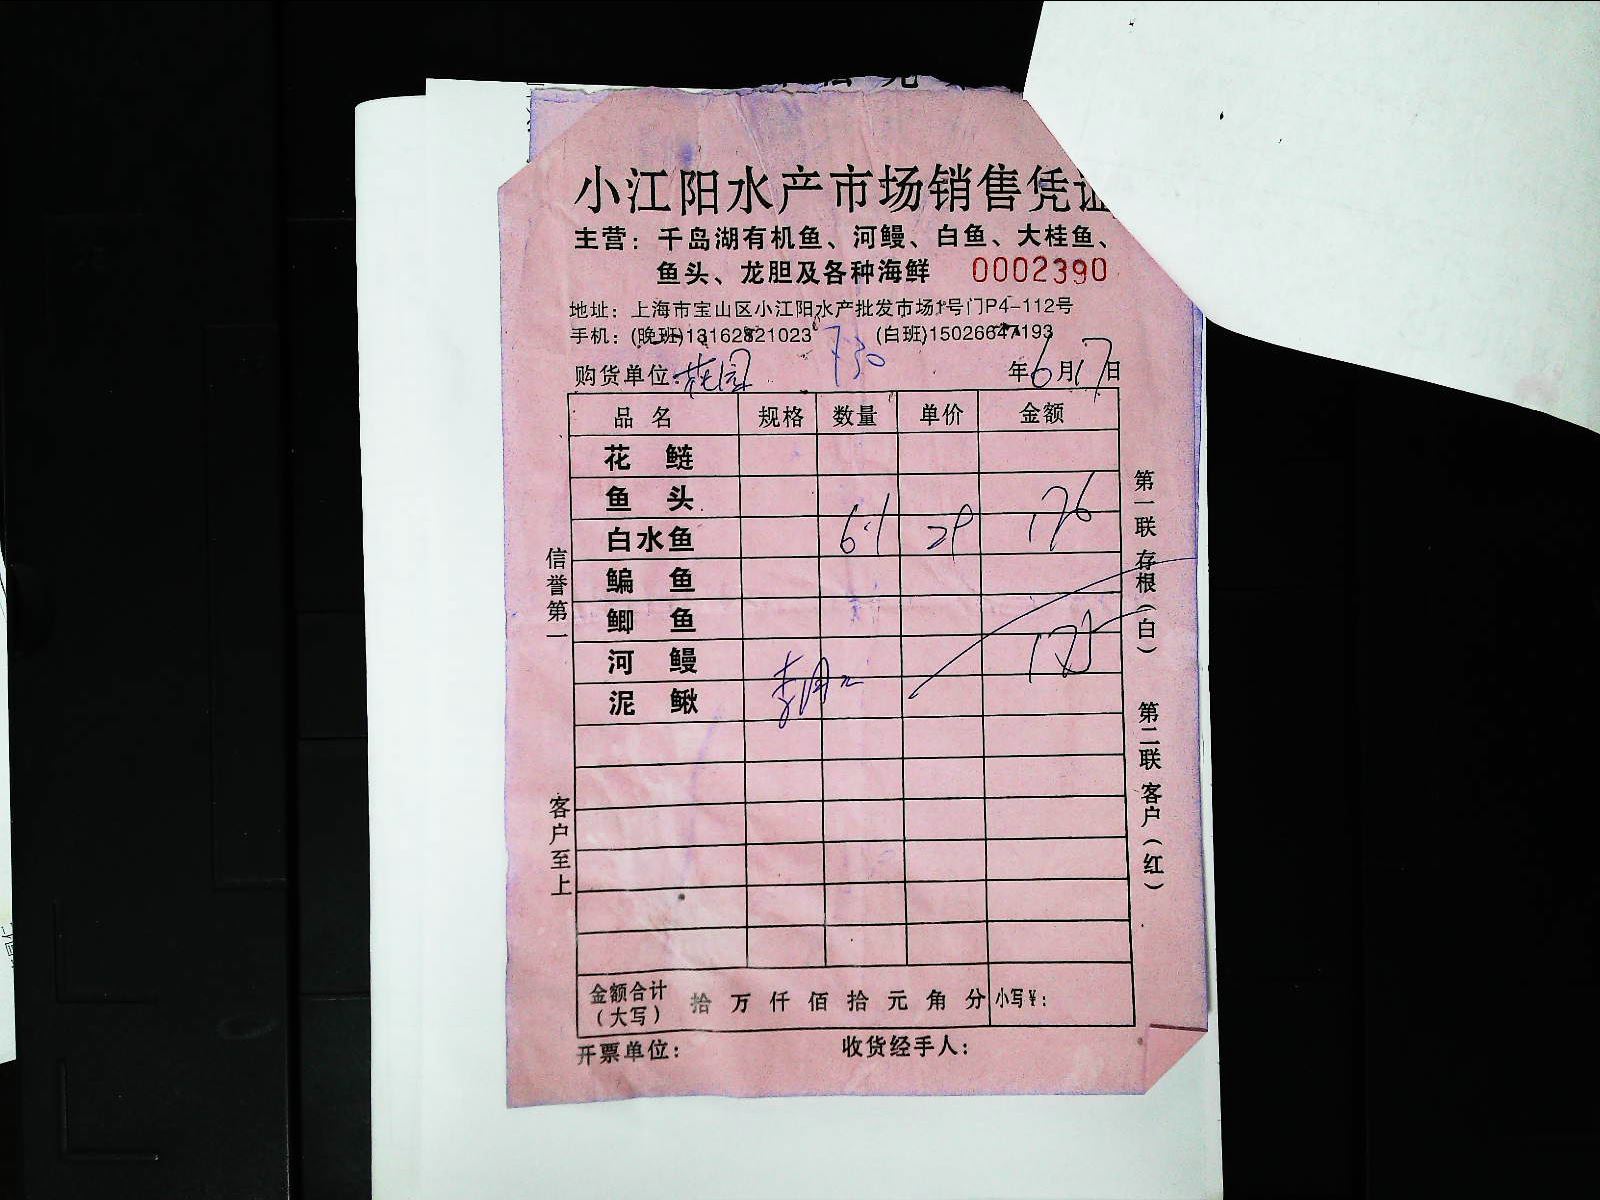 小江阳水产市场销售凭证
主营：千岛湖有机鱼、河鳗、白鱼、大桂鱼、
鱼头、龙胆及各种海鲜 0002390
地址：上海市宝山区小江阳水产批发市场1号门P4-112号
手机：(晚班)13162821023 (白班)15026647193
730
购货单位：花园 年6月17日
品名 规格 数量 单价 金额
花鲢
鱼头
白水鱼 6.1 29 176
鳊鱼
鲫鱼
河鳗 175
泥鳅
金额合计（大写） 拾 万 仟 佰 拾 元 角 分 小写￥：
开票单位： 收货经手人：
信誉第一
客户至上
第一联 存根（白）
第二联 客户（红）